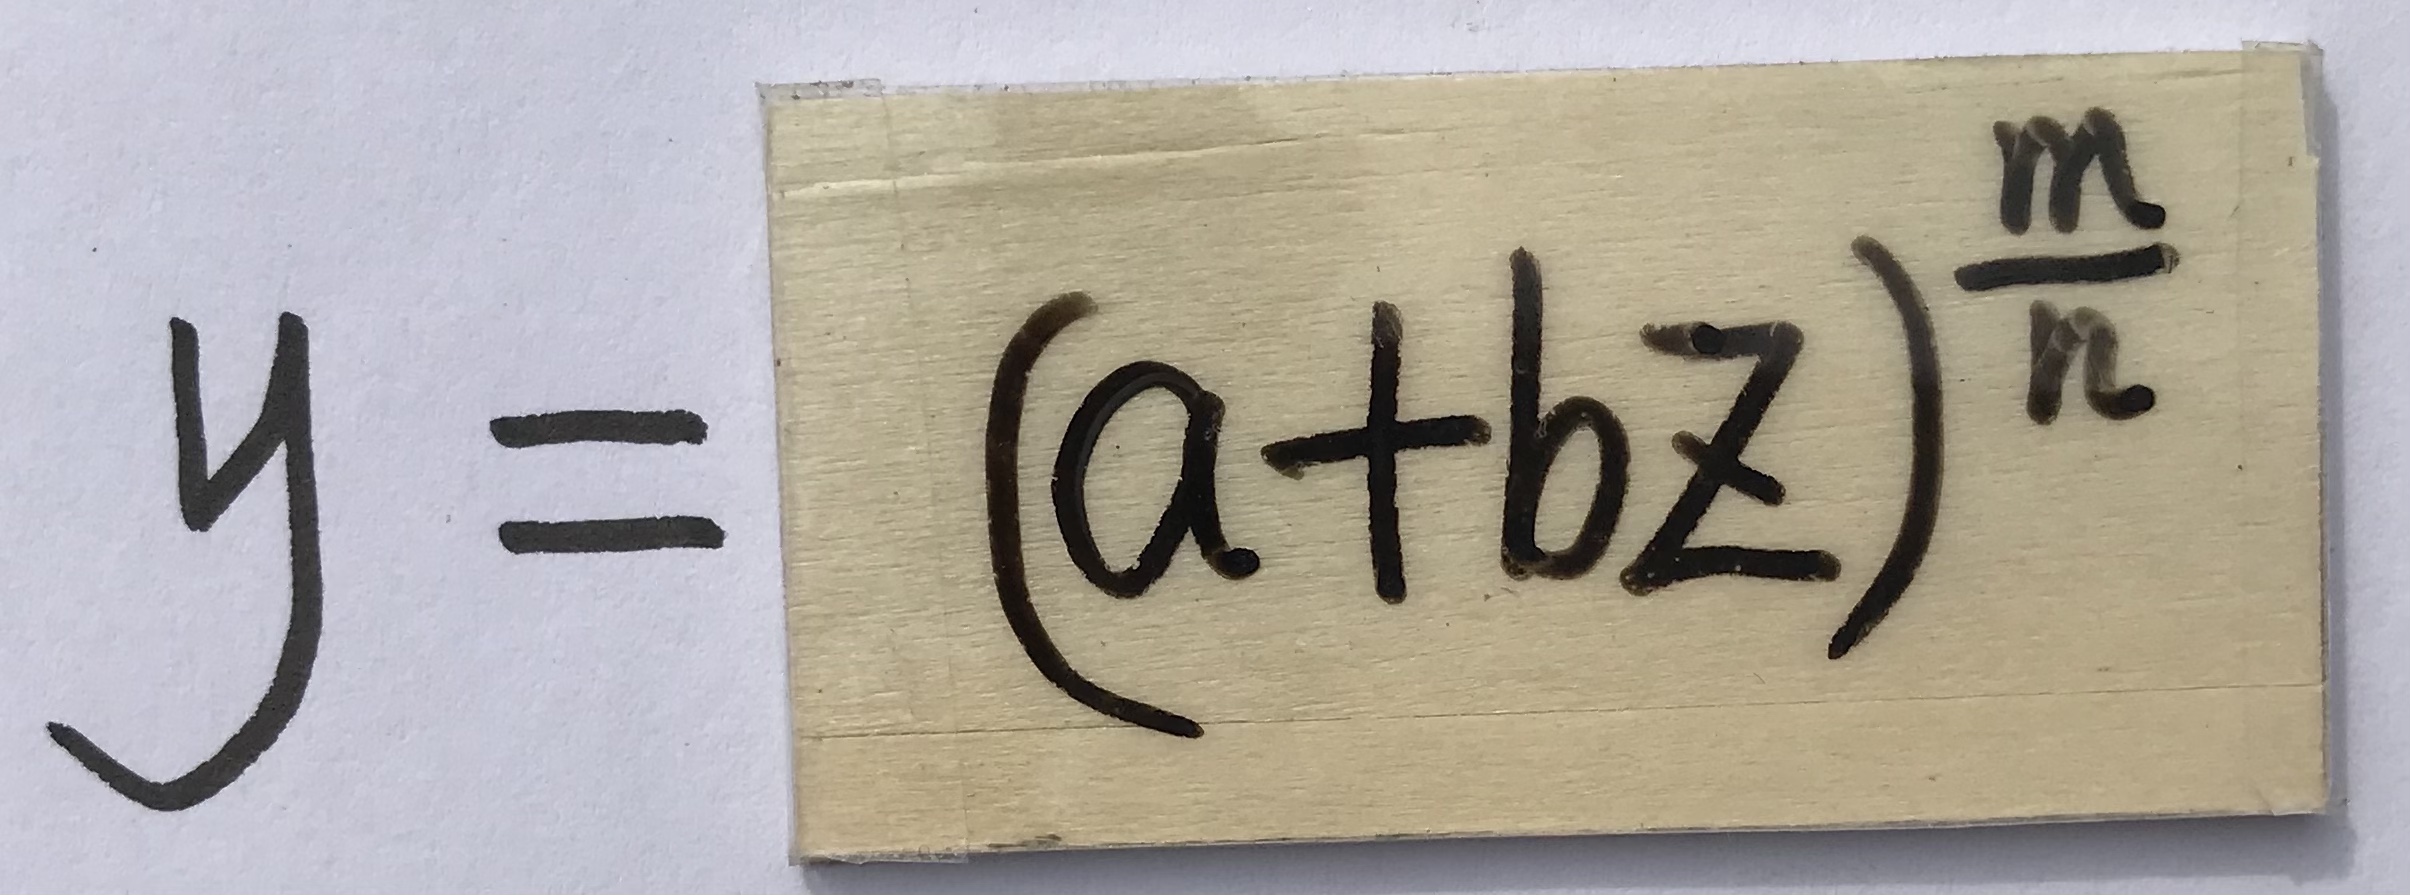 y = (a+bz)^{\frac{m}{n}}